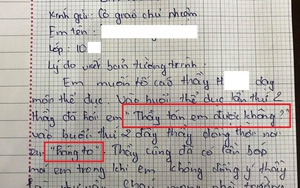 Kính gửi: Cô giáo chủ nhiệm
Em tên:
Lớp: 10
Lý do viết bản tường trình:
Em muốn tố cáo thầy H dạy
môn thể dục. Vào buổi thể dục lần thứ 2
thầy đã hỏi em "Thầy tán em được không?"
vào buổi thứ 2 đấy thầy đồng thời nói
em "Phòng to" Thầy cũng đã có lần bóp
em trong khi em không đồng ý thầy